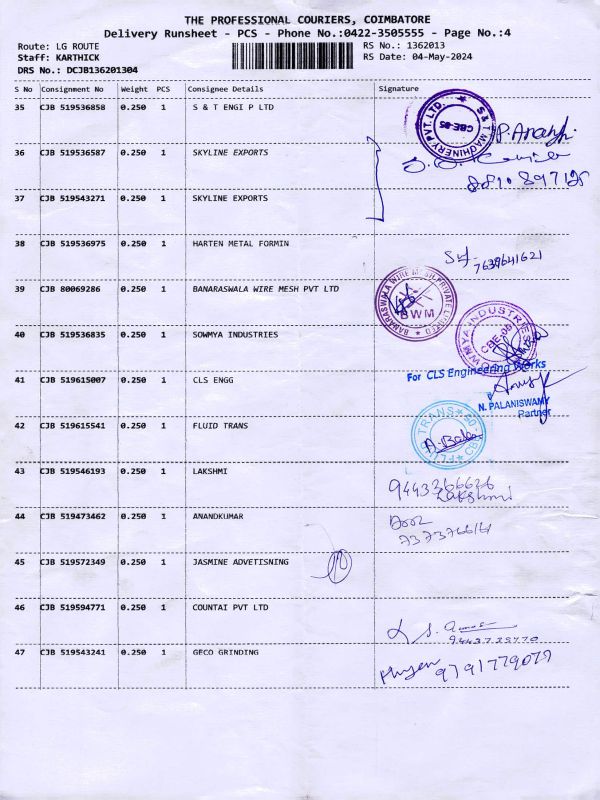 THE PROFESSIONAL COURIERS, COIMBATORE
Delivery Runsheet - PCS - Phone No.:0422-3505555 - Page No.:4
Route: LG ROUTE
RS No.: 1362013
Staff: KARTHICK
RS Date: 04-May-2024
DRS No.: DCJB136201304
S No Consignment No Weight PCS Consignee Details Signature
35 CJB 519536858 0.250 1 S & T ENGI P LTD
S & T MACHINERY PVT. LTD. CBE-05
36 CJB 519536587 0.250 1 SKYLINE EXPORTS
37 CJB 519543271 0.250 1 SKYLINE EXPORTS
38 CJB 519536975 0.250 1 HARTEN METAL FORMIN
7639641621
39 CJB 80069286 0.250 1 BANARASWALA WIRE MESH PVT LTD
BANARASWALA WIRE MESH PRIVATE LIMITED
BWM
40 CJB 519536835 0.250 1 SOWMYA INDUSTRIES
SOWMYA INDUSTRIES
41 CJB 519615007 0.250 1 CLS ENGG
For CLS Engineering Works
N. PALANISWAMY
Partner
42 CJB 519615541 0.250 1 FLUID TRANS
FLUID TRANS
A. Bala
43 CJB 519546193 0.250 1 LAKSHMI
Lakshmi
44 CJB 519473462 0.250 1 ANANDKUMAR
45 CJB 519572349 0.250 1 JASMINE ADVETISNING
46 CJB 519594771 0.250 1 COUNTAI PVT LTD
47 CJB 519543241 0.250 1 GECO GRINDING
9791779079